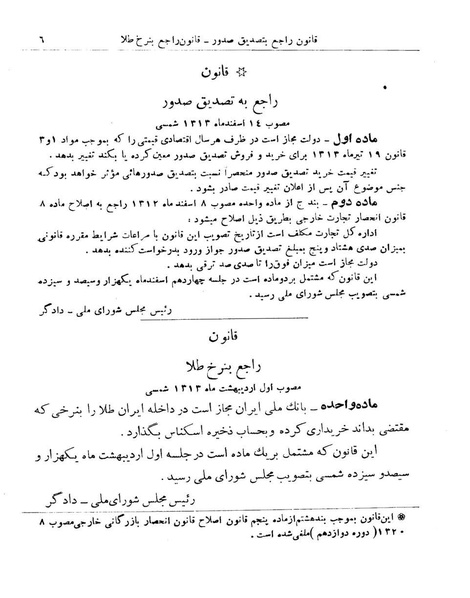 قانون راجع بتصدیق صدور - قانون راجع بنرخ طلا ٦
※ قانون
راجع به تصدیق صدور
مصوب ١٤ اسفندماه ١٣١٣ شمسی
ماده اول - دولت مجاز است در ظرف هر سال اقتصادی قیمتی را که بموجب مواد ١و٣
قانون ١٩ تیرماه ١٣١٣ برای خرید و فروش تصدیق صدور معین کرده یا بکند تغییر بدهد.
تغییر قیمت خرید تصدیق صدور منحصراً نسبت بتصدیق صدورهائی مؤثر خواهد بود که
جنس موضوع آن پس از اعلان تغییر قیمت صادر بشود.
ماده دوم - بند ج از ماده واحده مصوب ٨ اسفند ماه ١٣١٢ راجع به اصلاح ماده ٨
قانون انحصار تجارت خارجی بطریق ذیل اصلاح میشود:
اداره کل تجارت مکلف است از تاریخ تصویب این قانون با مراعات شرایط مقرره قانونی
بمیزان صدی هشتاد و پنج بمبلغ تصدیق صدور جواز ورود بدرخواست کننده بدهد.
دولت مجاز است میزان فوق را تا صدی صد ترقی بدهد.
این قانون که مشتمل بردوماده است در جلسه چهاردهم اسفندماه یکهزار وسیصد و سیزده
شمسی بتصویب مجلس شورای ملی رسید.
رئیس مجلس شورای ملی - دادگر
قانون
راجع بنرخ طلا
مصوب اول اردیبهشت ماه ١٣١٣ شمسی
ماده واحده - بانك ملی ایران مجاز است در داخله ایران طلا را بنرخی که
مقتضی بداند خریداری کرده و بحساب ذخیره اسکناس بگذارد.
این قانون که مشتمل بريك ماده است در جلسه اول اردیبهشت ماه یکهزار و
سیصدو سیزده شمسی بتصویب مجلس شورای ملی رسید.
رئیس مجلس شورای ملی - دادگر
※ این قانون بموجب بندهشتم ازماده پنجم قانون اصلاح قانون انحصار بازرگانی خارجی مصوب ٨
١٣٢٠ر (دوره دوازدهم) ملغی شده است.